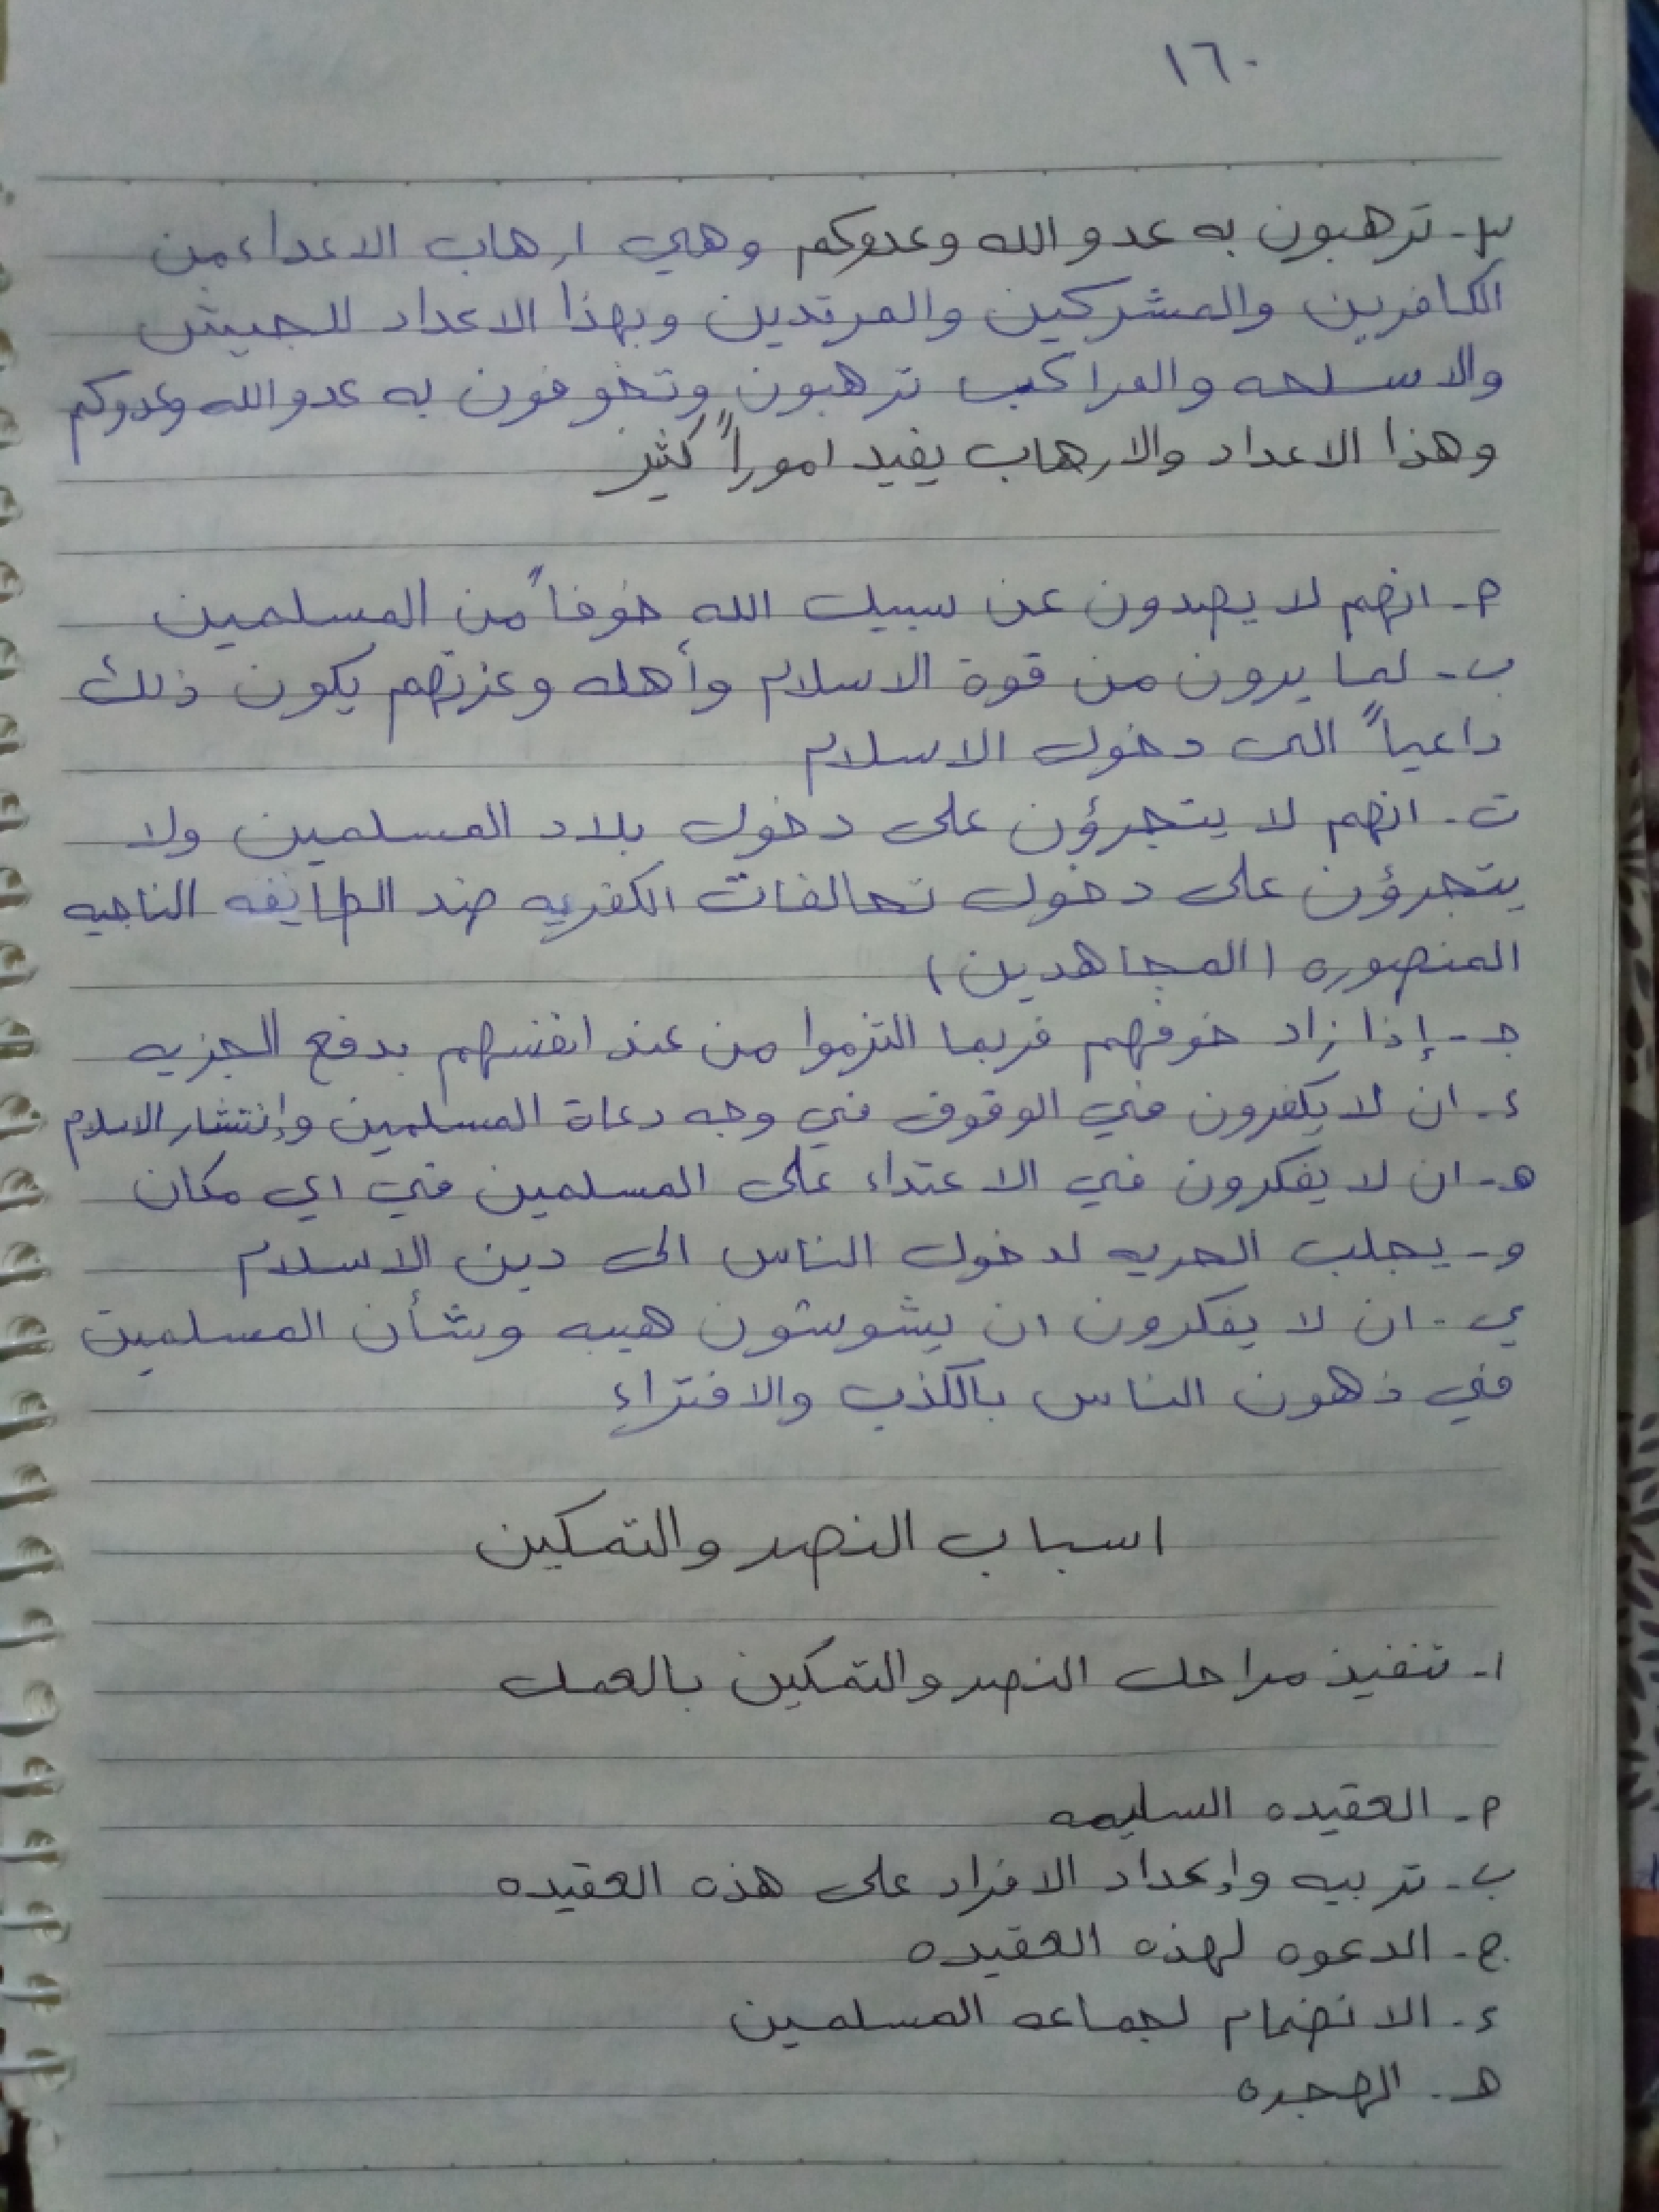 ١٦٠
٣- ترهبون به عدو الله وعدوكم وهي ارهاب الاعداء من
الكافرين والمشركين والمرتدين وبهذا الاعداد للجيش
والاسلحه والمراكب ترهبون وتخوفون به عدو الله وعدوكم
وهذا الاعداد والارهاب يفيد اموراً كثير
أ- انهم لا يصدون عن سبيل الله خوفاً من المسلمين
ب- لما يرون من قوة الاسلام وأهله وعزتهم يكون ذلك
داعياً الى دخول الاسلام
ت- انهم لا يتجرؤن على دخول بلاد المسلمين ولا
يتجرؤن على دخول تحالفات الكفريه ضد الطايفه الناجيه
المنصوره (المجاهدين)
جـ- إذا زاد خوفهم فربما التزموا من عند انفسهم بدفع الجزيه
ء- ان لا يكفرون في الوقوف في وجه دعاة المسلمين وإنتشار الاسلام
هـ- ان لا يفكرون في الاعتداء على المسلمين في اي مكان
و- يجلب الحريه لدخول الناس الى دين الاسلام
ي- ان لا يفكرون ان يشوشون هيبه وشأن المسلمين
في ذهون الناس بالكذب والافتراء
اسباب النصر والتمكين
١- تنفيذ مراحل النصر والتمكين بالعمل
أ- العقيده السليمه
ب- تربيه وإعداد الافراد على هذه العقيده
ج- الدعوه لهذه العقيده
ء- الانضمام لجماعه المسلمين
هـ- الهجره